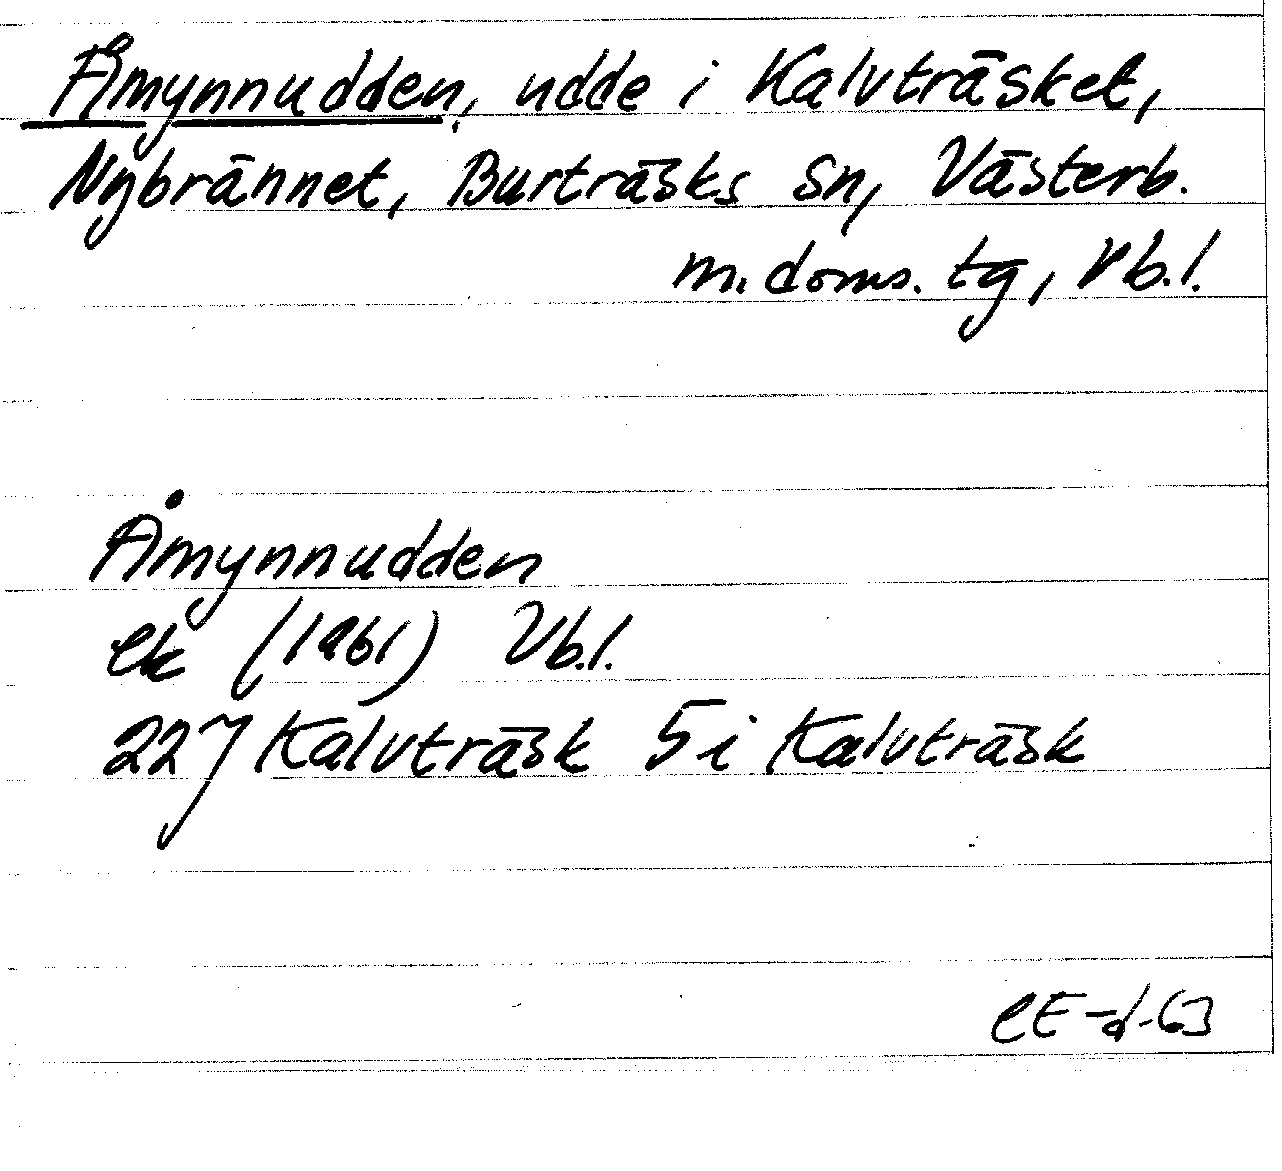 Åmynnudden, udde i Kalvträsket,
Nybrännet, Burträsks sn, Västerb.
m. doms. tg, Vb. l.
Åmynnudden
ek (1961) Vb. l.
227 Kalvträsk 5 i Kalvträsk
CE-d-63